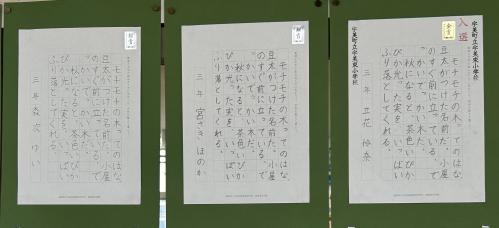 モチモチの木ってのはな、
豆太がつけた名前だ。小屋
のすぐ前に立っている、で
っかいでっかい木だ。
秋になると、茶色いぴか
ぴか光った実を、いっぱい
ふり落としてくれる。
三年 けい
モチモチの木ってのはな、
豆太がつけた名前だ。小屋
のすぐ前に立っている、で
っかいでっかい木だ。
秋になると、茶色いぴか
ぴか光った実を、いっぱい
ふり落としてくれる。
三年 宮ざき ほのか
入選
金賞
宇美町立宇美東小学校
モチモチの木ってのはな、
豆太がつけた名前だ。小屋
のすぐ前に立っている、で
っかいでっかい木だ。
秋になると、茶色いぴか
ぴか光った実を、いっぱい
ふり落としてくれる。
三年 立花
宇美町立宇美東小学校